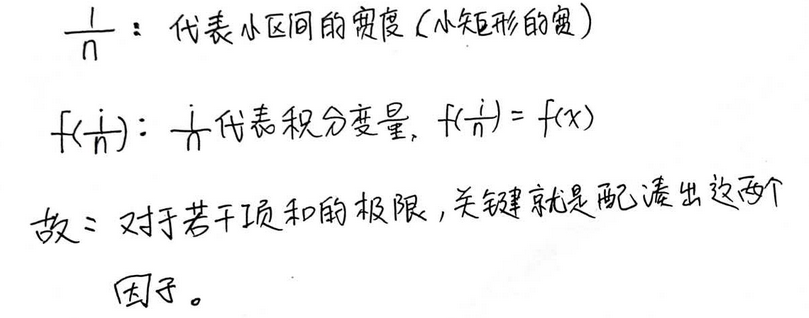 1/n：代表小区间的宽度（小矩形的宽）
f(i/n)：i/n代表积分变量，f(i/n) = f(x)
故：对于若干项和的极限，关键就是配凑出这两个
因子。